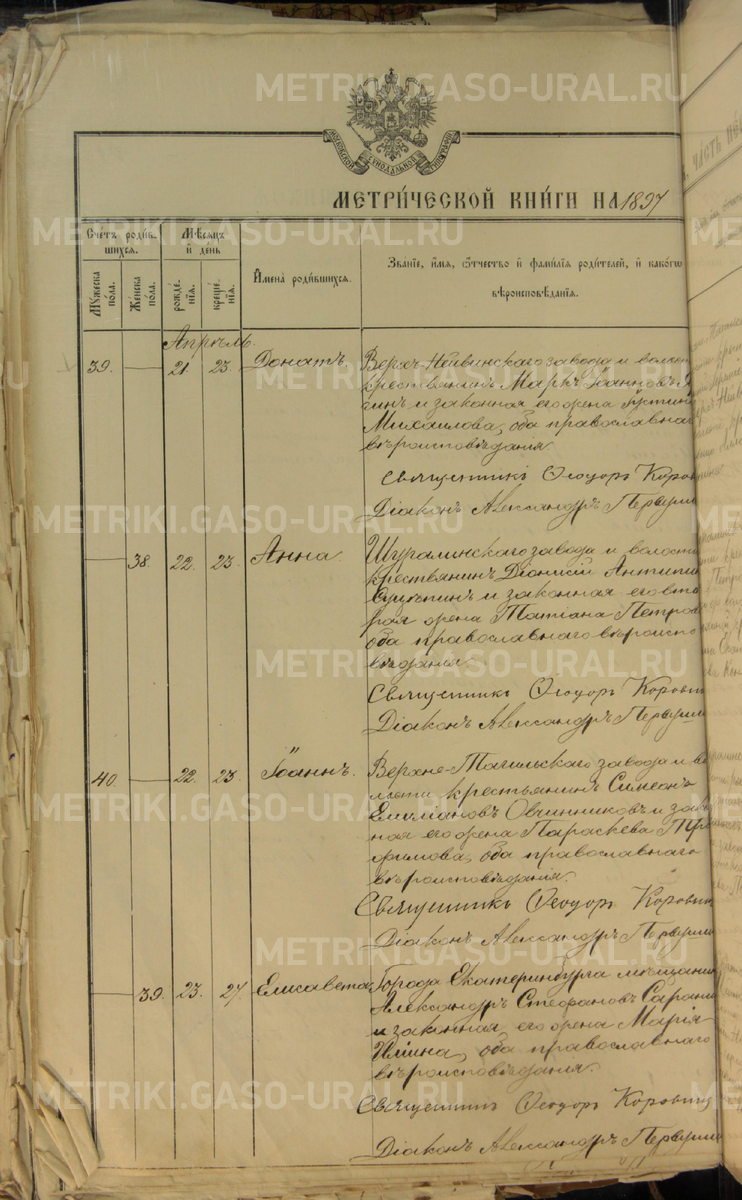 МОСКОВСКОЙ СѴНОДАЛЬНОЙ ТИПОГРАФІИ
МЕТРИ́ЧЕСКОЙ КНИ́ГИ НА 1897
Сче́тъ роди́в-
шихся.
Мѣ́сяцъ
и҆ де́нь
Мꙋ́жеска
по́ла.
Же́нска
по́ла.
рожде́-
нїѧ.
креще́-
нїѧ.
И҆мена̀ роди́вшихся.
Зва́нїе, и҆́мѧ, ѻ҆́тчество и҆ фами́лїѧ роди́телей, и҆ како́гѡ
вѣроисповѣ́данїѧ.
Апрѣль.
39. 21 23. Донатъ. Верхъ-Нейвинскаго завода и волост
крестьянинъ Маркъ Іоанновъ
гинъ и законная его жена Іустинi
Михаилова, оба православнаг
вѣроисповѣданія.
Священникъ Ѳеодоръ Коров
Діаконъ Александръ Первуши
38. 22. 23. Анна. Шуралинскаго завода и волости
крестьянинъ Діонисій Антипи
и законная его вто
рая жена Татіана Петров
оба православнаго вѣроиспо
вѣданія.
Священникъ Ѳеодоръ Коровин
Діаконъ Александръ Первуши
40. 22. 23. Іоаннъ. Верхне-Тагильскаго завода и во
лости крестьянинъ Симеонъ
Емиліановъ Овчинниковъ и зако
ная его жена Параскева Тро
фимова, оба православнаго
вѣроисповѣданія.
Священникъ Ѳеодоръ Коровин
Діаконъ Александръ Первуши
39. 23. 27. Елисавета. Города Екатеринбурга мѣщанин
Александръ Стефановъ Сарани
и законная его жена Марія
Ильина, оба православнаго
вѣроисповѣданія.
Священникъ Ѳеодоръ Коровин
Діаконъ Александръ Первуши
METRIKI.GASO-URAL.RU